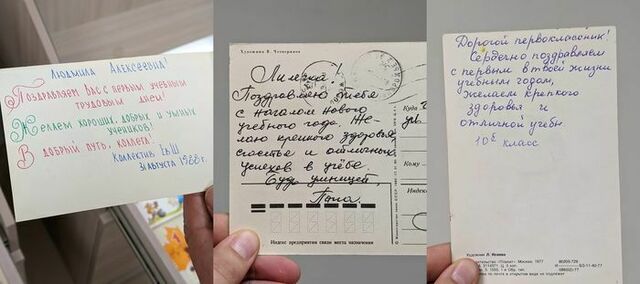 Людмила Алексеевна!
Поздравляем Вас с первым учебным
трудовым днём!
Желаем хороших, добрых и умных
учеников!
В добрый путь, коллега!
Коллектив
31 августа 1988 г.
Художник В. Четвериков
Поздравляю тебя
с началом нового
учебного года. Же-
лаю крепкого здоровья,
счастья и отличных
успехов в учёбе.
Будь умницей.
Папа.
Кому
Индекс
Индекс предприятия связи места назначения
Дорогой первоклассник!
Сердечно поздравляем
с первым в твоей жизни
учебным годом,
желаем крепкого
здоровья и
отличной учебы.
10 класс
Москва. 1977